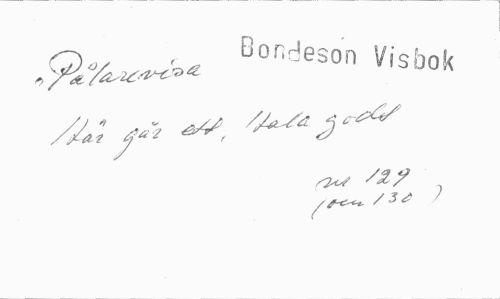 Bondeson Visbok
"Pålarevisa
Här går ett, Hala godt
nr 129
(och 130)